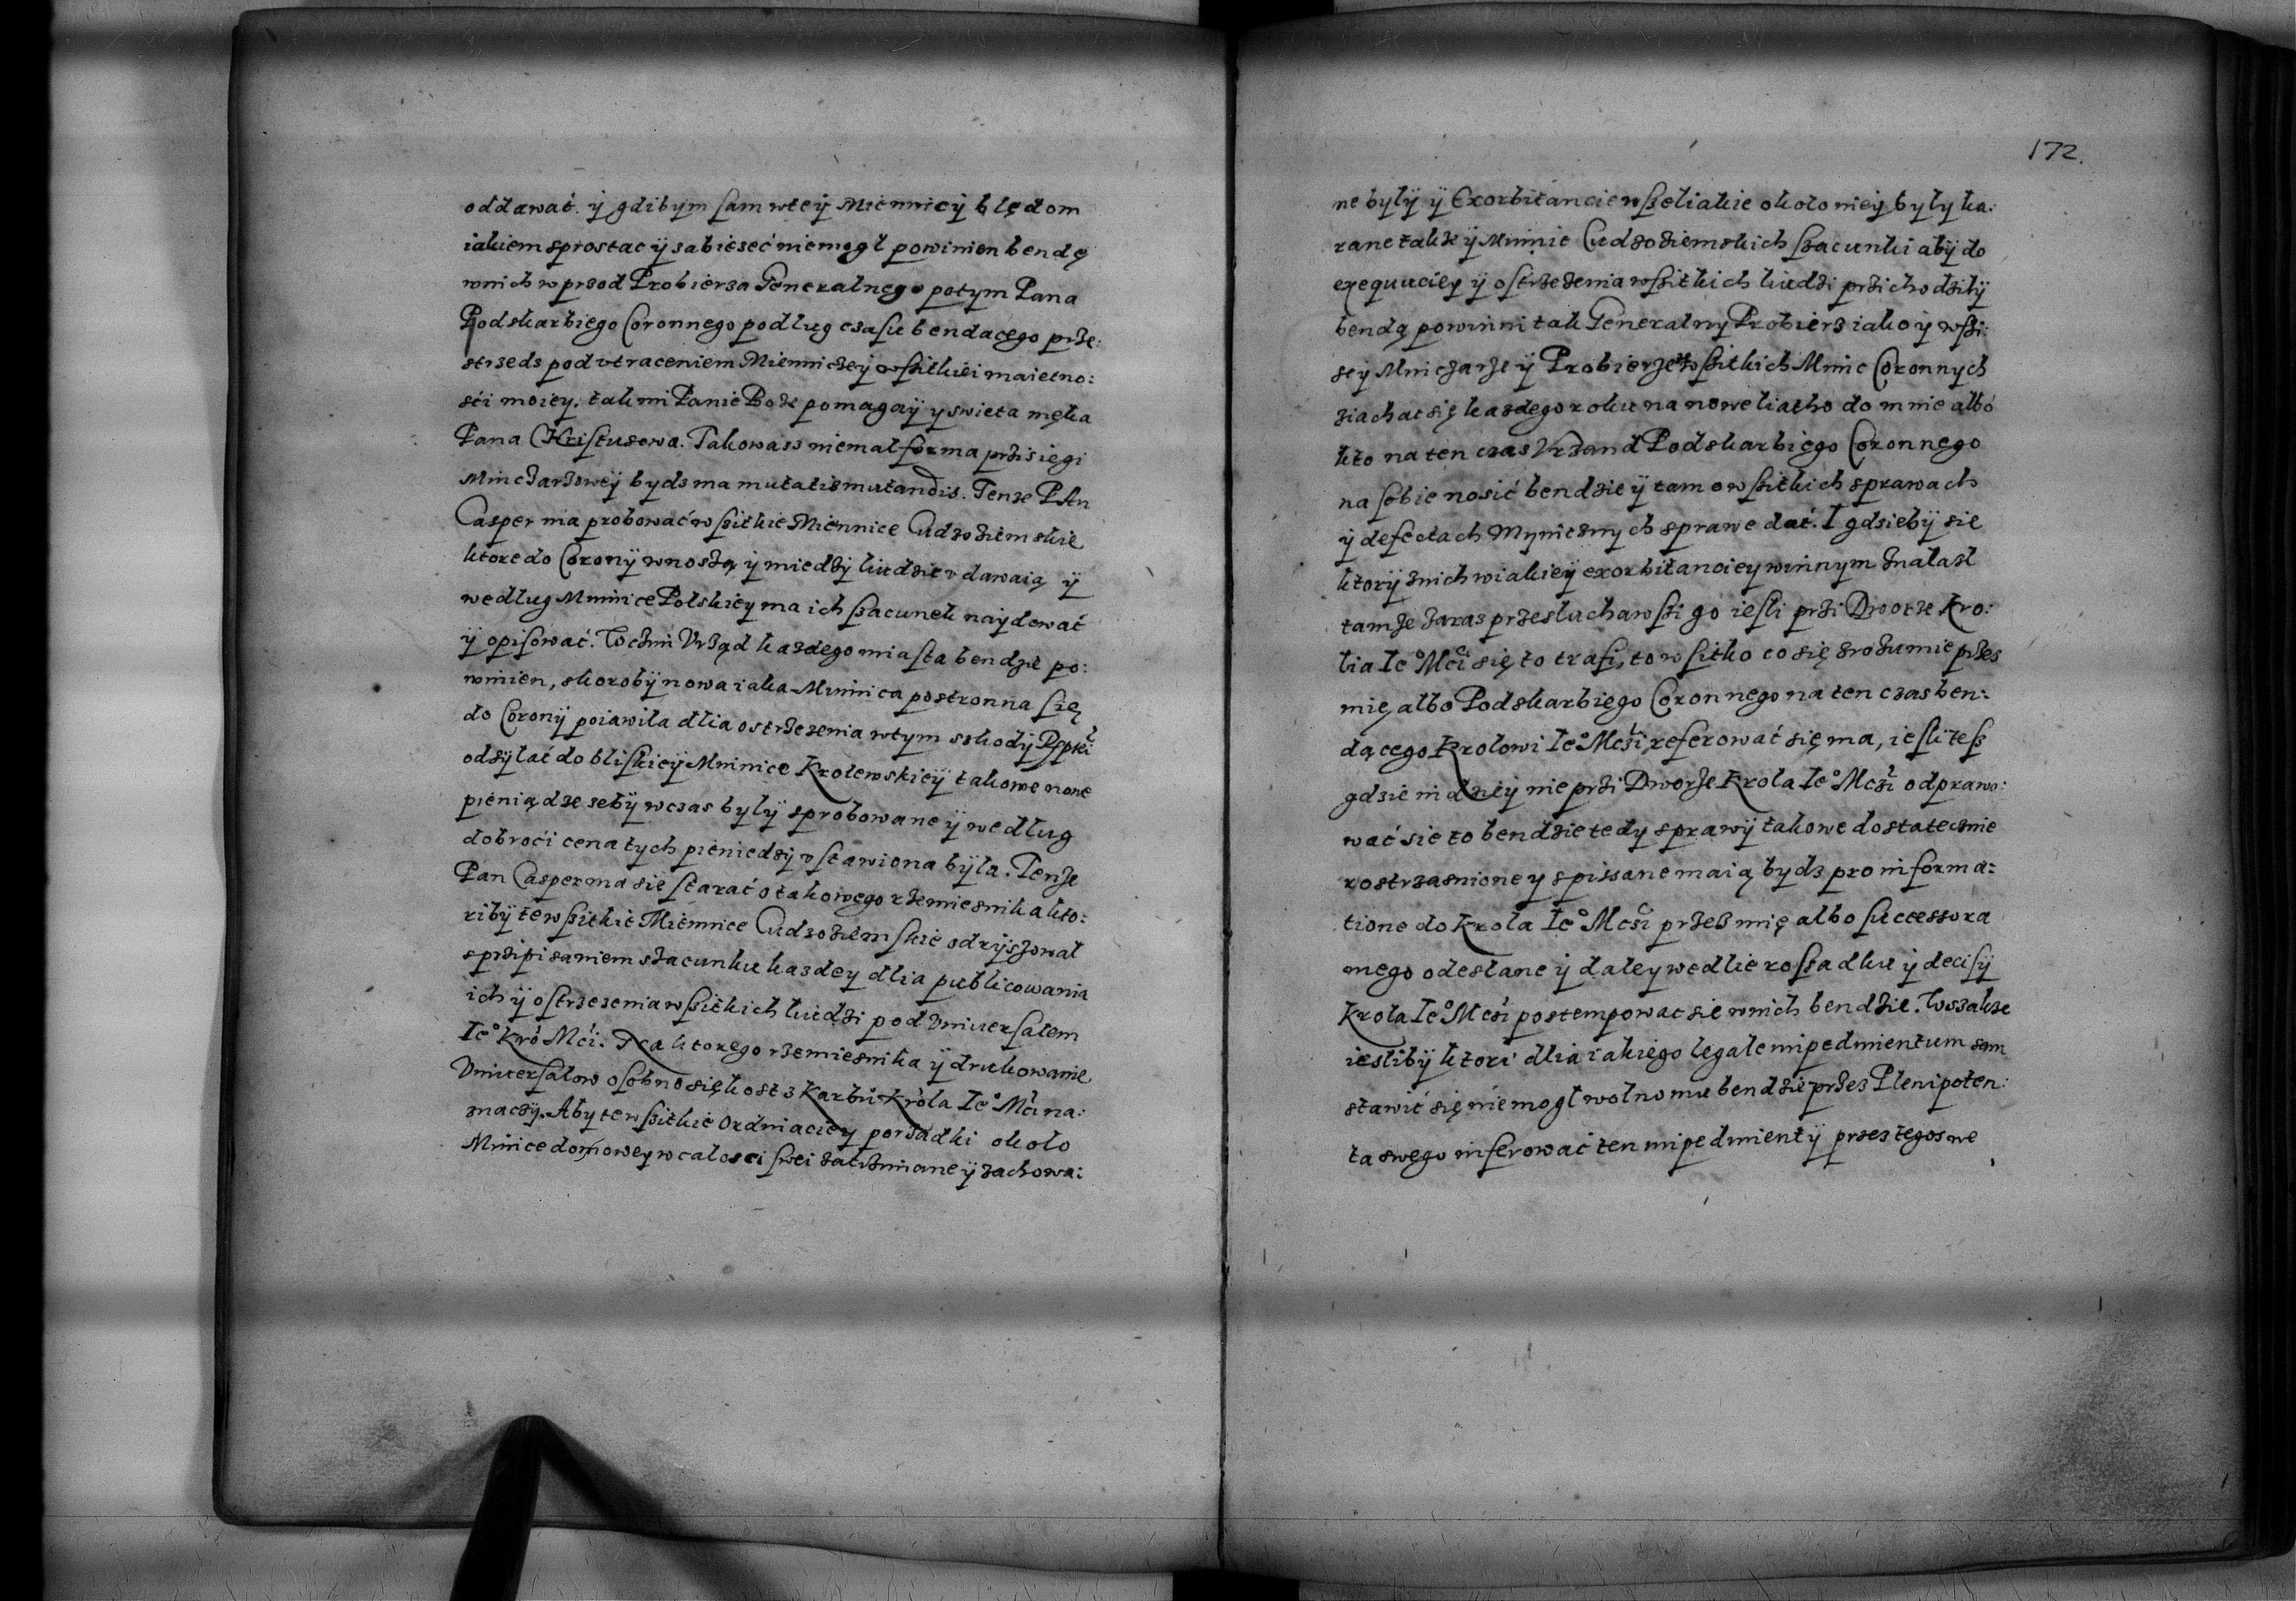 oddawać. ÿ gdibym sam wteÿ Miennicÿ błędom
iakiem sprostac ÿ zabieseć niemogł powinien bendę
wnich wprzod Probierza Generalnego potym Pana
Podskarbiego Coronnego podług czasu bendacego prze:
strzeds pod vtraceniem Mienniczeÿ wszitkiei maietno:
sći moiey. tak mi Panie Boze pomagaÿ y swieta męka
Pana Christusowa. Takowasz niemal forma prżisięgi
Minczarzoweÿ bydz ma mutatis mutandis. Tenze PAn
Casper ma probować wszitkie Miennice Cudzoziemskie
ktore do Coronÿ wnoszą ÿ miedzÿ liudzie vdawaią ÿ
według Mninice Polskiey ma ich szacunek naÿdować
ÿ opisować. Toczim Vrząd kazdego miasta bendzie po:
winien, skorobÿ nowa iaka Mninica postronna się
do Coronÿ poiawila dlia ostrzezenia wtym szkodÿ Rzptei
odsÿlać do bliskieÿ Mninice Krolewskieÿ takowe nowe
pieniądze zebÿ wczas bylÿ sprobowane ÿ według
dobroći cena tych pieniedzÿ vstawiona bÿla. Tenze
Pan Casper ma sie starać o takowego rzemiesnika kto:
ribÿ te wszitkie Miennice Cudzoziemskie odrÿszowal
sprzipisaniem szacunku kazdey dlia publicowania
ich ÿ ostrzezenia wszitkich liudzi pod Vniuersalem
Ie° Kro Mći. Na ktorego rzemiesnika ÿ drukowanie
Vniuersalow osobno się koszt z Karbu Krola Ie° Mći na:
znaczÿ. Aby te wszitkie Ordinaciey porzadki około
Mnice domowey w calosci swei zatrzimane ÿ zachowa:
172.
ne bylÿ ÿ Exorbitancie wszeliakie około nieÿ byly ka:
rane takze ÿ Mninic Cudzoziemskich szacunki abÿ do
exequuciey ÿ ostrzezenia wszitkich liudzi prżichodzilÿ
bendą powinni tak Generalny Probierz iako ÿ wszi:
scy Mniczarze ÿ Probierze wszitkich Mninic Coronnych
ziachac się kazdego roku na nowe liatho do mnie albo
kto na ten czas Vrzand Podskarbiego Coronnego
na sobie nosić bendzie ÿ tam o wszitkich sprawach
ÿ defectach Mynicznych sprawe dać. I gdziebÿ sie
ktorÿ znich wiakieÿ exorbitanciey winnym znalasl
tamze zaraz przesluchawszi go iesli przi Dworze Kro:
lia Ie° Mći się to trafi, to wszitko co się zrozumie przes
mię albo Podskarbiego Coronnego na ten czas ben:
dącego Krolowi Ie° Mcśi referować się ma, iesli tesz
gdzie indzieÿ nie przi Dworze Krola Ie° Mcśi odprawo:
wać sie to bendzie tedy sprawÿ takowe dostatecznie
rostrzasnione y spissane maią bydz pro informa:
tione do Krola Ie° Mcśi przez mię albo successora
mego odeslane ÿ daley wedlie rossadku ÿ decisÿ
Krola Ie° Mcśi postempowac sie wnich bendzie. Wszakze
ieslibÿ ktori dlia iakiego legale impedimentum sam
stawić się nie mogł wolno mu bendzie przez Plenipoten:
ta swego inferować ten impedimentÿ przez tegoz we